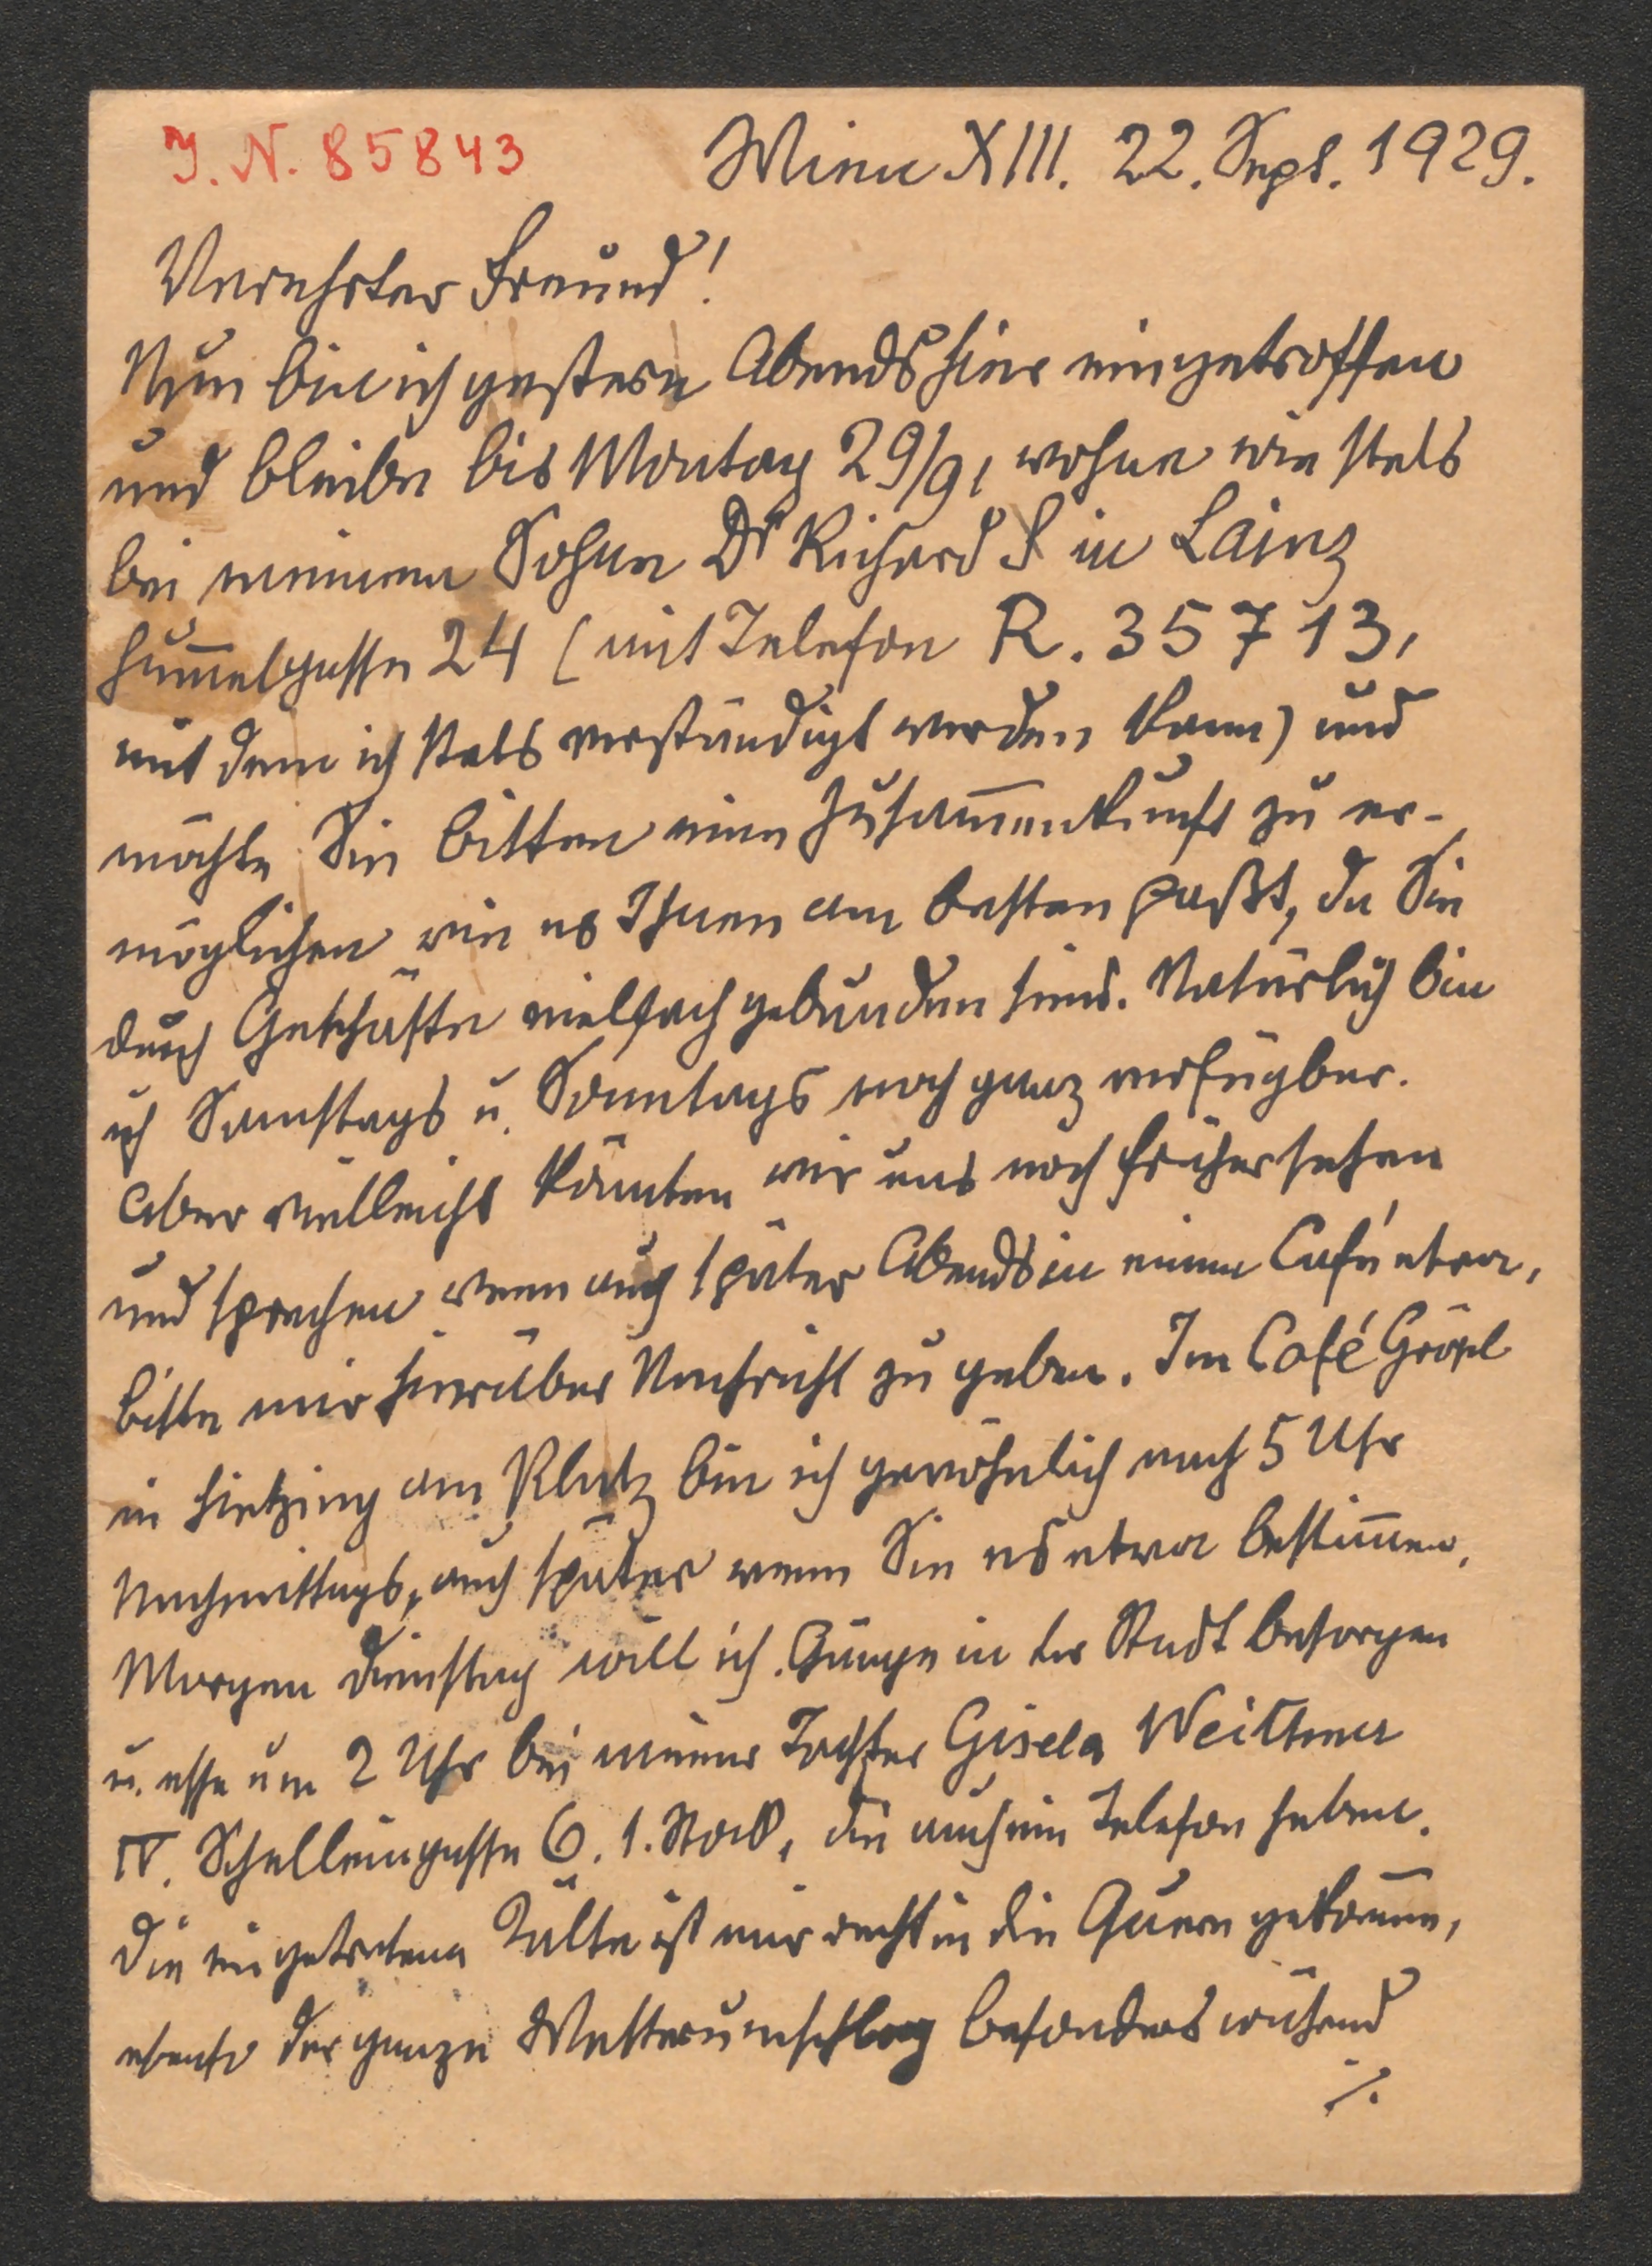 I. N. 85843
Wien XIII. 22. Sept. 1929.
Verehrter Freund!
Nun bin ich gestern Abends hier eingetroffen
und bleibe bis Montag 29/9, wohne wie stets
bei meinem Sohne Dr Richard S in Lainz
Hum̅elgasse 24 (mit Telefon R. 35713,
mit dem ich stets verständigt werden kann) und
möchte Sie bitten eine Zusam̅enkunft zu er-
möglichen wie es Ihnen am besten paßt, da Sie
durch Geschäfte vielfach gebunden sind. Natürlich bin
ich Samstags u. Sonntags noch ganz verfügbar.
Aber vielleicht könnten wir uns noch früher sehen
und sprechen wenn auch später Abends in einem Café etwa,
bitte mir hierüber Nachricht zu geben. Im Café Gröpl
in Hietzing am Platz bin ich gewöhnlich nach 5 Uhr
Nachmittags, auch später wenn Sie es etwa bestim̅en.
Morgen Dienstag will ich Gänge in der Stadt besorgen
u. esse um 2 Uhr bei meiner Tochter Gisela
IV. Schelleingasse 6. 1. Stock, die auch ein Telefon haben.
Die eingetretene Kälte ist mir recht in die Quere gekom̅en,
ebenso der ganze Wetterumschlag besonders während
./.